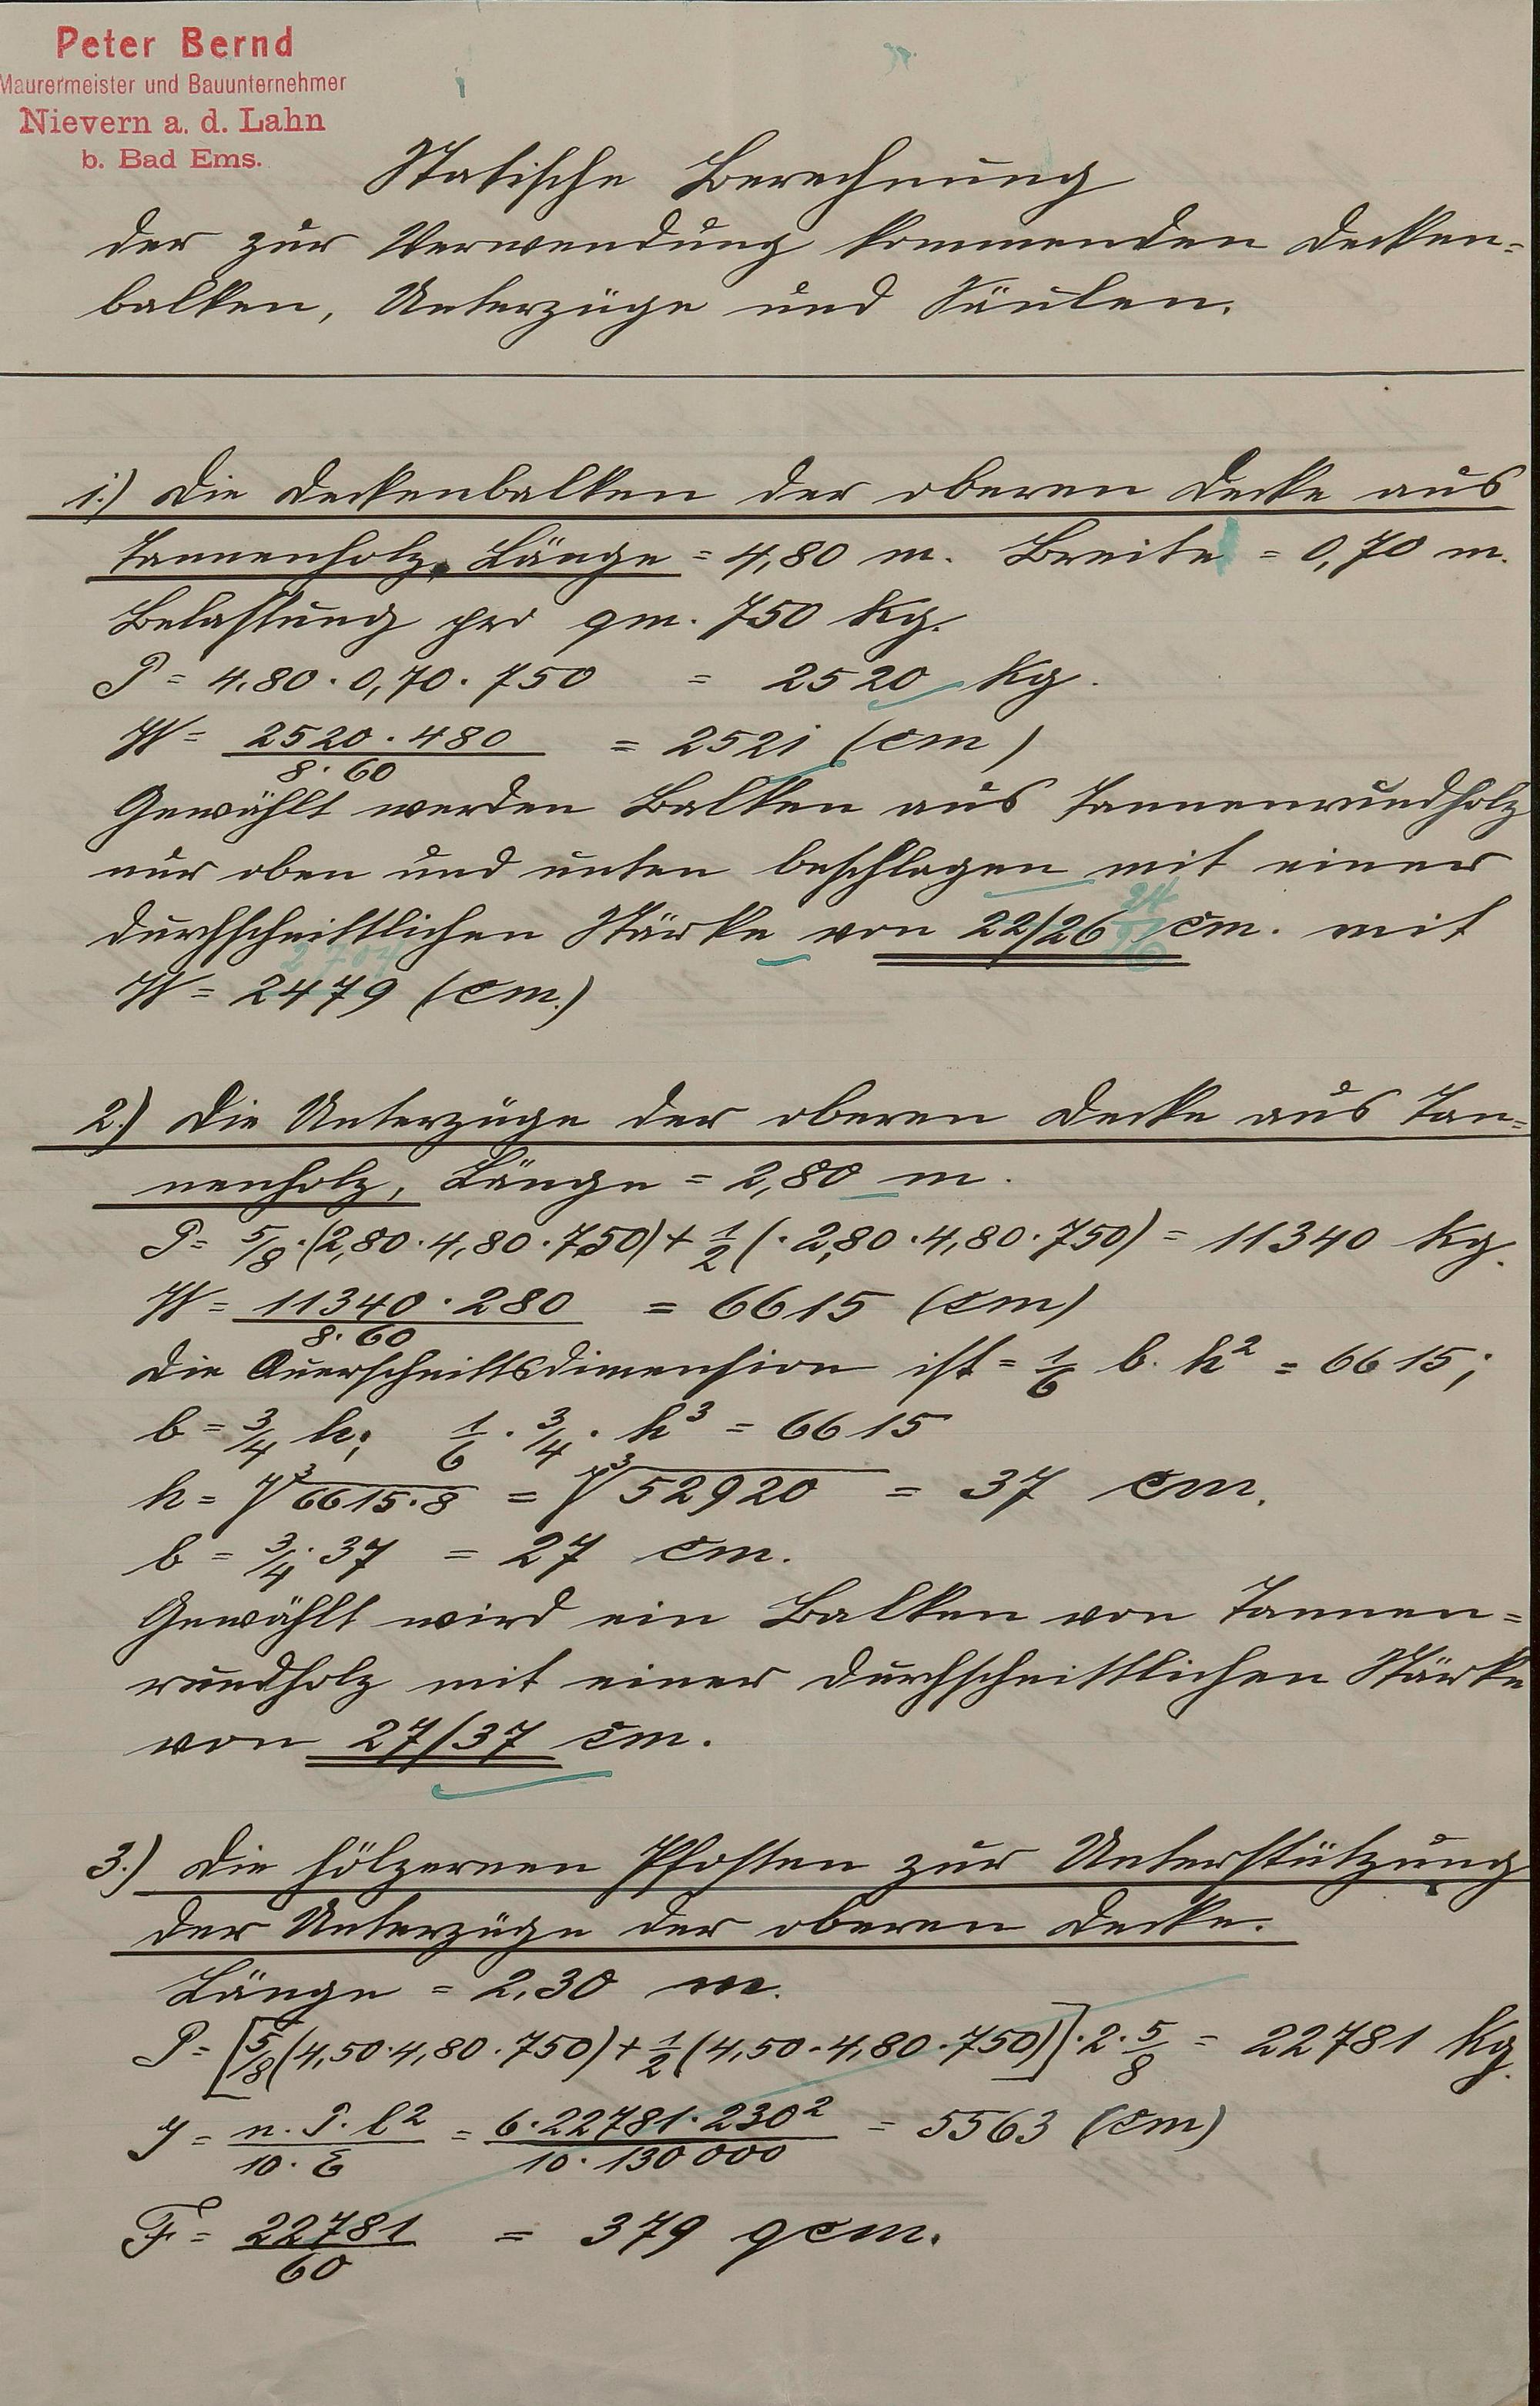 Peter Bernd
Maurermeister und Bauunternehmer
Nievern a. d. Lahn
b. Bad Ems.
Statische Berechnung
der zur Verwendung kommenden Decken-
balken, Unterzüge und Säulen.
1.) Die Deckenbalken der oberen Decke aus
Tannenholz, Länge = 4,80 m. Breite = 0,70 m.
Belastung pro qm. 750 Kg.
P = 4,80 · 0,70 · 750 = 2520 Kg.
W = 2520 · 480 / 8 · 60 = 2521 (cm)
Gewählt werden Balken aus Tannenrundholz
nur oben und unten beschlagen mit einer
24
durchschnittlichen Stärke von 22/26 cm. mit
26
2704
W = 2479 (cm.)
2.) Die Unterzüge der oberen Decke aus Tan-
nenholz, Länge = 2,80 m.
P = 5/8 · (2,80 · 4,80 · 750) + 1/2 (· 2,80 · 4,80 · 750) = 11340 Kg.
W = 11340 · 280 / 8 · 60 = 6615 (cm)
Die Querschnittsdimension ist = 1/6 b · h² = 6615;
b = 3/4 h; 1/6 · 3/4 · h³ = 6615
h = ∛6615 · 8 = ∛52920 = 37 cm.
b = 3/4 · 37 = 27 cm.
Gewählt wird ein Balken von Tannen-
rundholz mit einer durchschnittlichen Stärke
von 27/37 cm.
3.) Die hölzernen Pfosten zur Unterstützung
der Unterzüge der oberen Decke.
Länge = 2,30 m.
P = [5/8 (4,50 · 4,80 · 750) + 1/2 (4,50 · 4,80 · 750)] · 2 · 5/8 = 22781 Kg.
J = n · P · l² / 10 · E = 6 · 22781 · 230² / 10 · 130000 = 5563 (cm)
F = 22781 / 60 = 379 qcm.